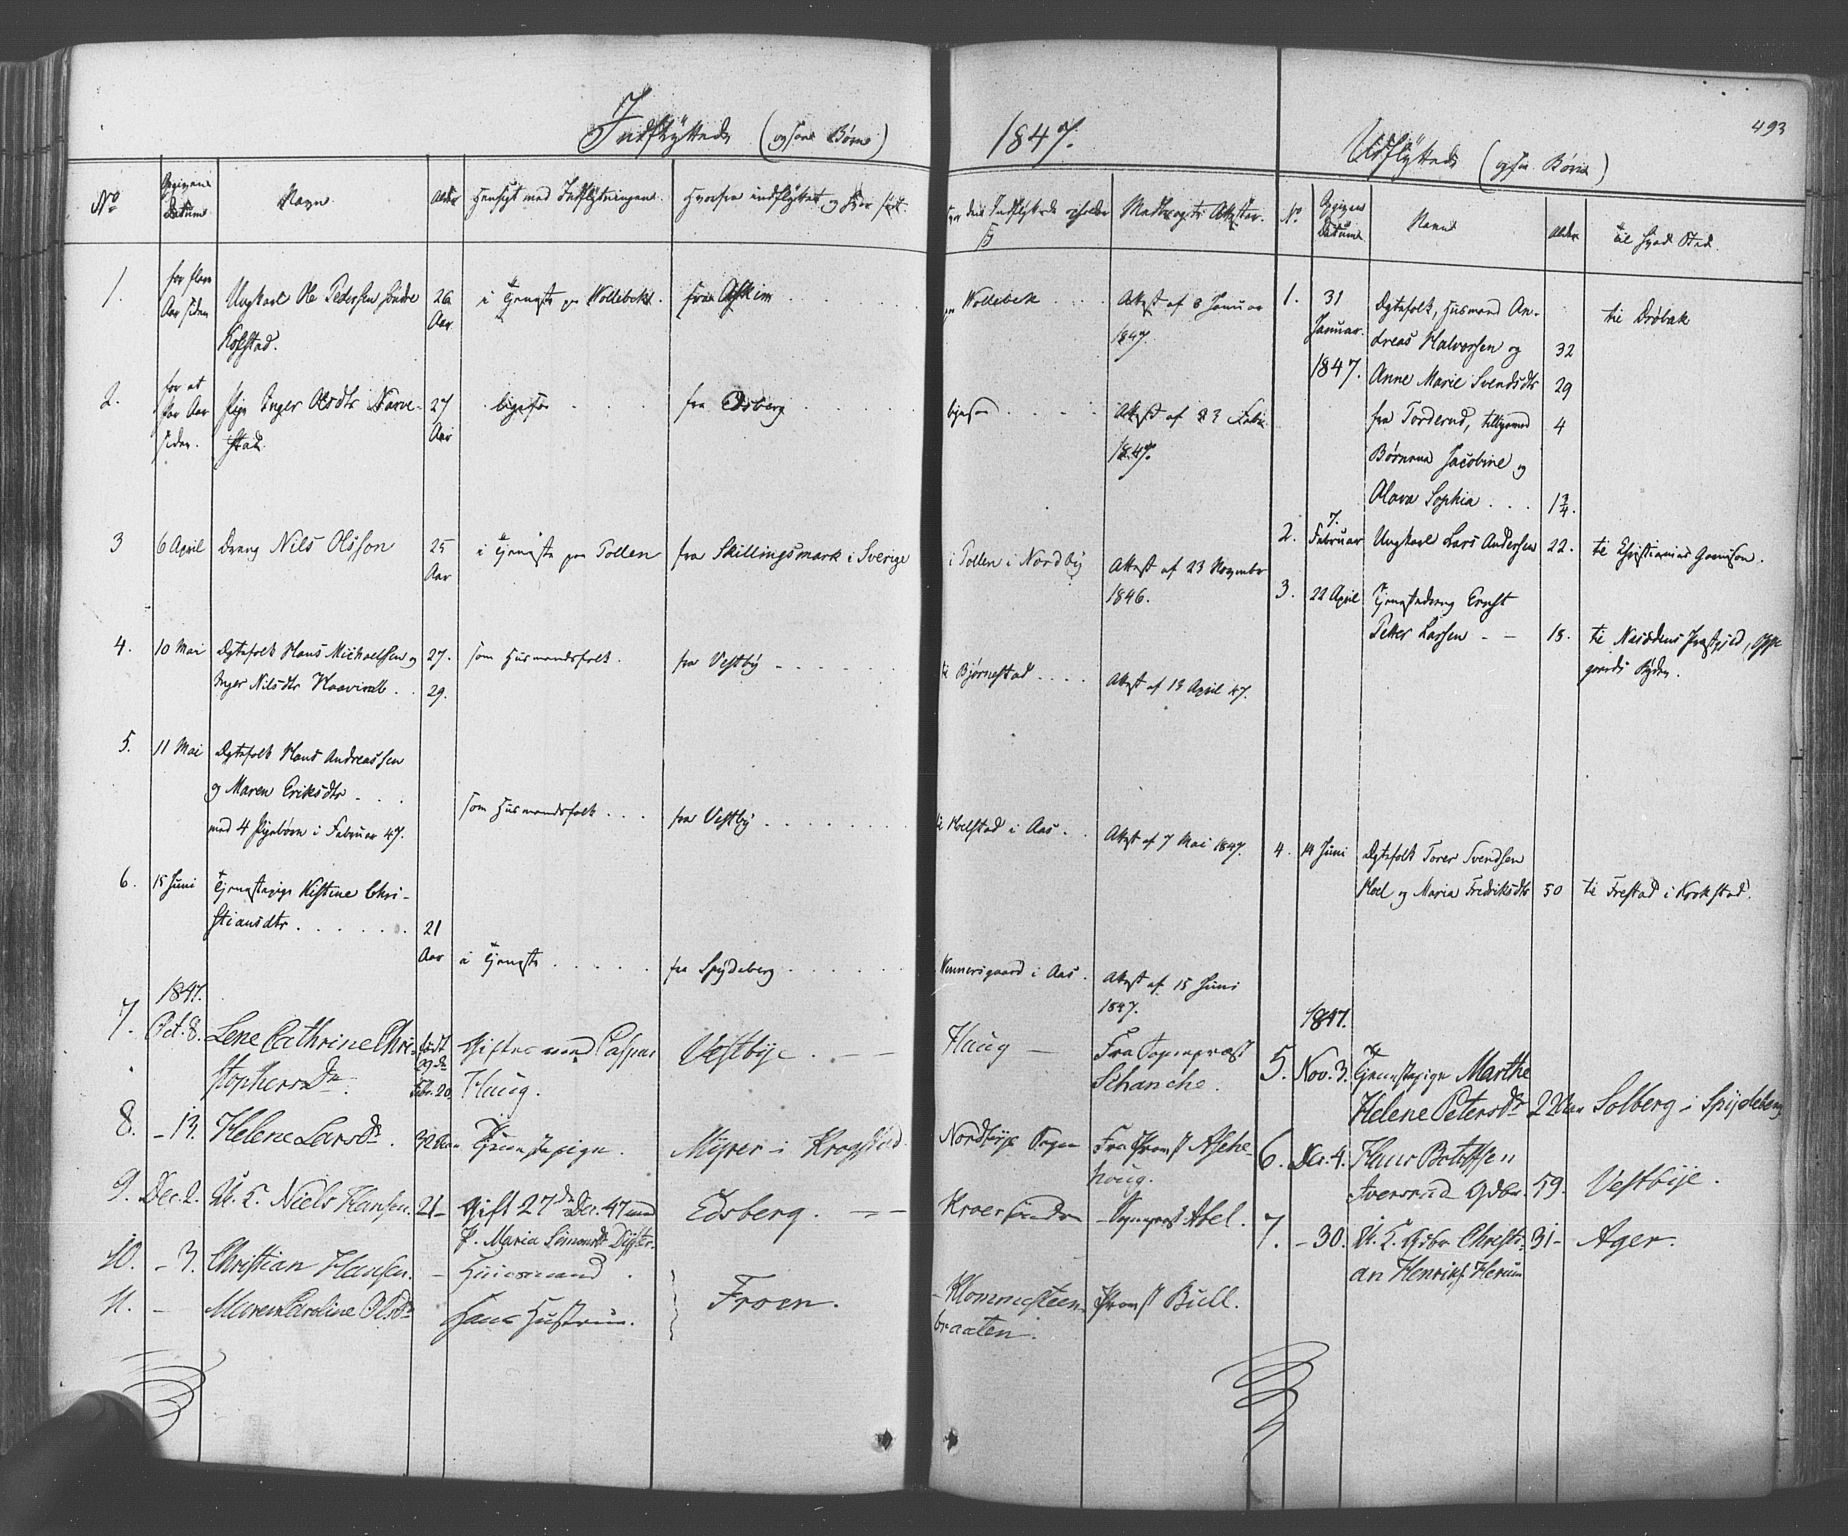 493
Indflyttede (ogsaa Børn) 1847.
No
Opgivne Datum
Navn
Alder
Hensigt med Indflytningen.
Hvorfra indflyttet og hvor
den Indflyttede
Medbragte Attester.
1.
for flere Aar siden
Ungkarl Ole Pedersen søndre
Kolstad.
26 Aar
i Tjeneste paa Nollebek.
fra Askim
Nollebek
Attest af 8 Januar
1847.
2.
for et Par Aar siden.
Pige Inger Olsdtr Narve-
stad.
27 Aar
ligesaa
fra Edsberg
ligesaa
Attest af 23 Febr.
1847.
3
6 April
Dreng Nils Olsson
25 Aar
i Tjeneste paa Tollen
fra Skillingsmark i Sverige
i Tollen i Nordby
Attest af 23 November
1846.
4.
10 Mai
Ægtefolk Hans Michaelsen og
Inger Nilsdtr
27.
29.
som Husmandsfolk.
fra Vestby
til Bjørnestad
Attest af 13 April 47.
5.
11 Mai
Ægtefolk Hans Andreassen
og Maren Eriksdtr
med 4 Pigebørn i Februar 47.
som Husmandsfolk
fra Vestby
til Holstad i Aas.
Attest af 7 Mai 1847.
6.
15 Juni
Tjenestepige Kistine Chri-
stiansdtr
21 Aar
i Tjeneste
fra Spydeberg
Vennersgaard i Aas.
Attest af 15 Juni
1847.
1847.
7.
Oct. 8.
Lene Cathrine Chri-
stophersDr
født
Febr. 20
Giftes med Casper
Haug.
Vestbye.
Haug
Fra Sognepræst
Schanche.
8.
- 13.
Helene LarsDr.
32 Aar
Tjenestepige.
Myrer i Krogstad.
Nordbye Sogn
Fra Provst Asche-
houg.
9.
Dec. 2.
U. K. Niels Hansen.
21 -
Gift 27de Dec. 47 med
P. Maria Simensdr Dyster.
Edsberg.
Kroer søndre
Sognepræst Abel.
10.
- 3.
Christian Hansen.
-
Huusmand.
Froen.
Klommesteen-
braaten.
Provst Bull.
11.
-
Maren Caroline OlsDr
Hans Hustrue.
Udflyttede (ogsaa Børn)
No.
Opgivne Datum
Navn
Alder
til hvad Sted
1.
31 Januar 1847.
Ægtefolk, Husmand An-
dreas Halvorsen og
32
Anne Marie Svendsdtr
29
fra Torderud, tilligemed
4
Børnene Jacobine og
Olava Sophia
1 3/4.
til Drøbak
2.
7. Februar
Ungkarl Lars Andersen
22.
til Christianias Garnison.
3.
22 April
Tjenestedreng Ernst
Petter Larsen
18.
til Næsoddens Præstegjeld, Oppe-
gaards Bygden.
4.
14 Juni
Ægtefolk Torer Svendsen
Moel og Maria Fredriksdtr
50
til Frestad i Krokstad.
1847.
5.
Nov. 3.
Tjenestepige Marthe
Helene PetersDr
22 Aar
Solberg i Spydeberg
6.
Dec. 4.
Hans Botolfsen
Iversrud Gdbr.
59.
Vestbye.
7.
- 30.
U. K. Gdbr Christi-
an Henriks. Herum
31 -
Ager.